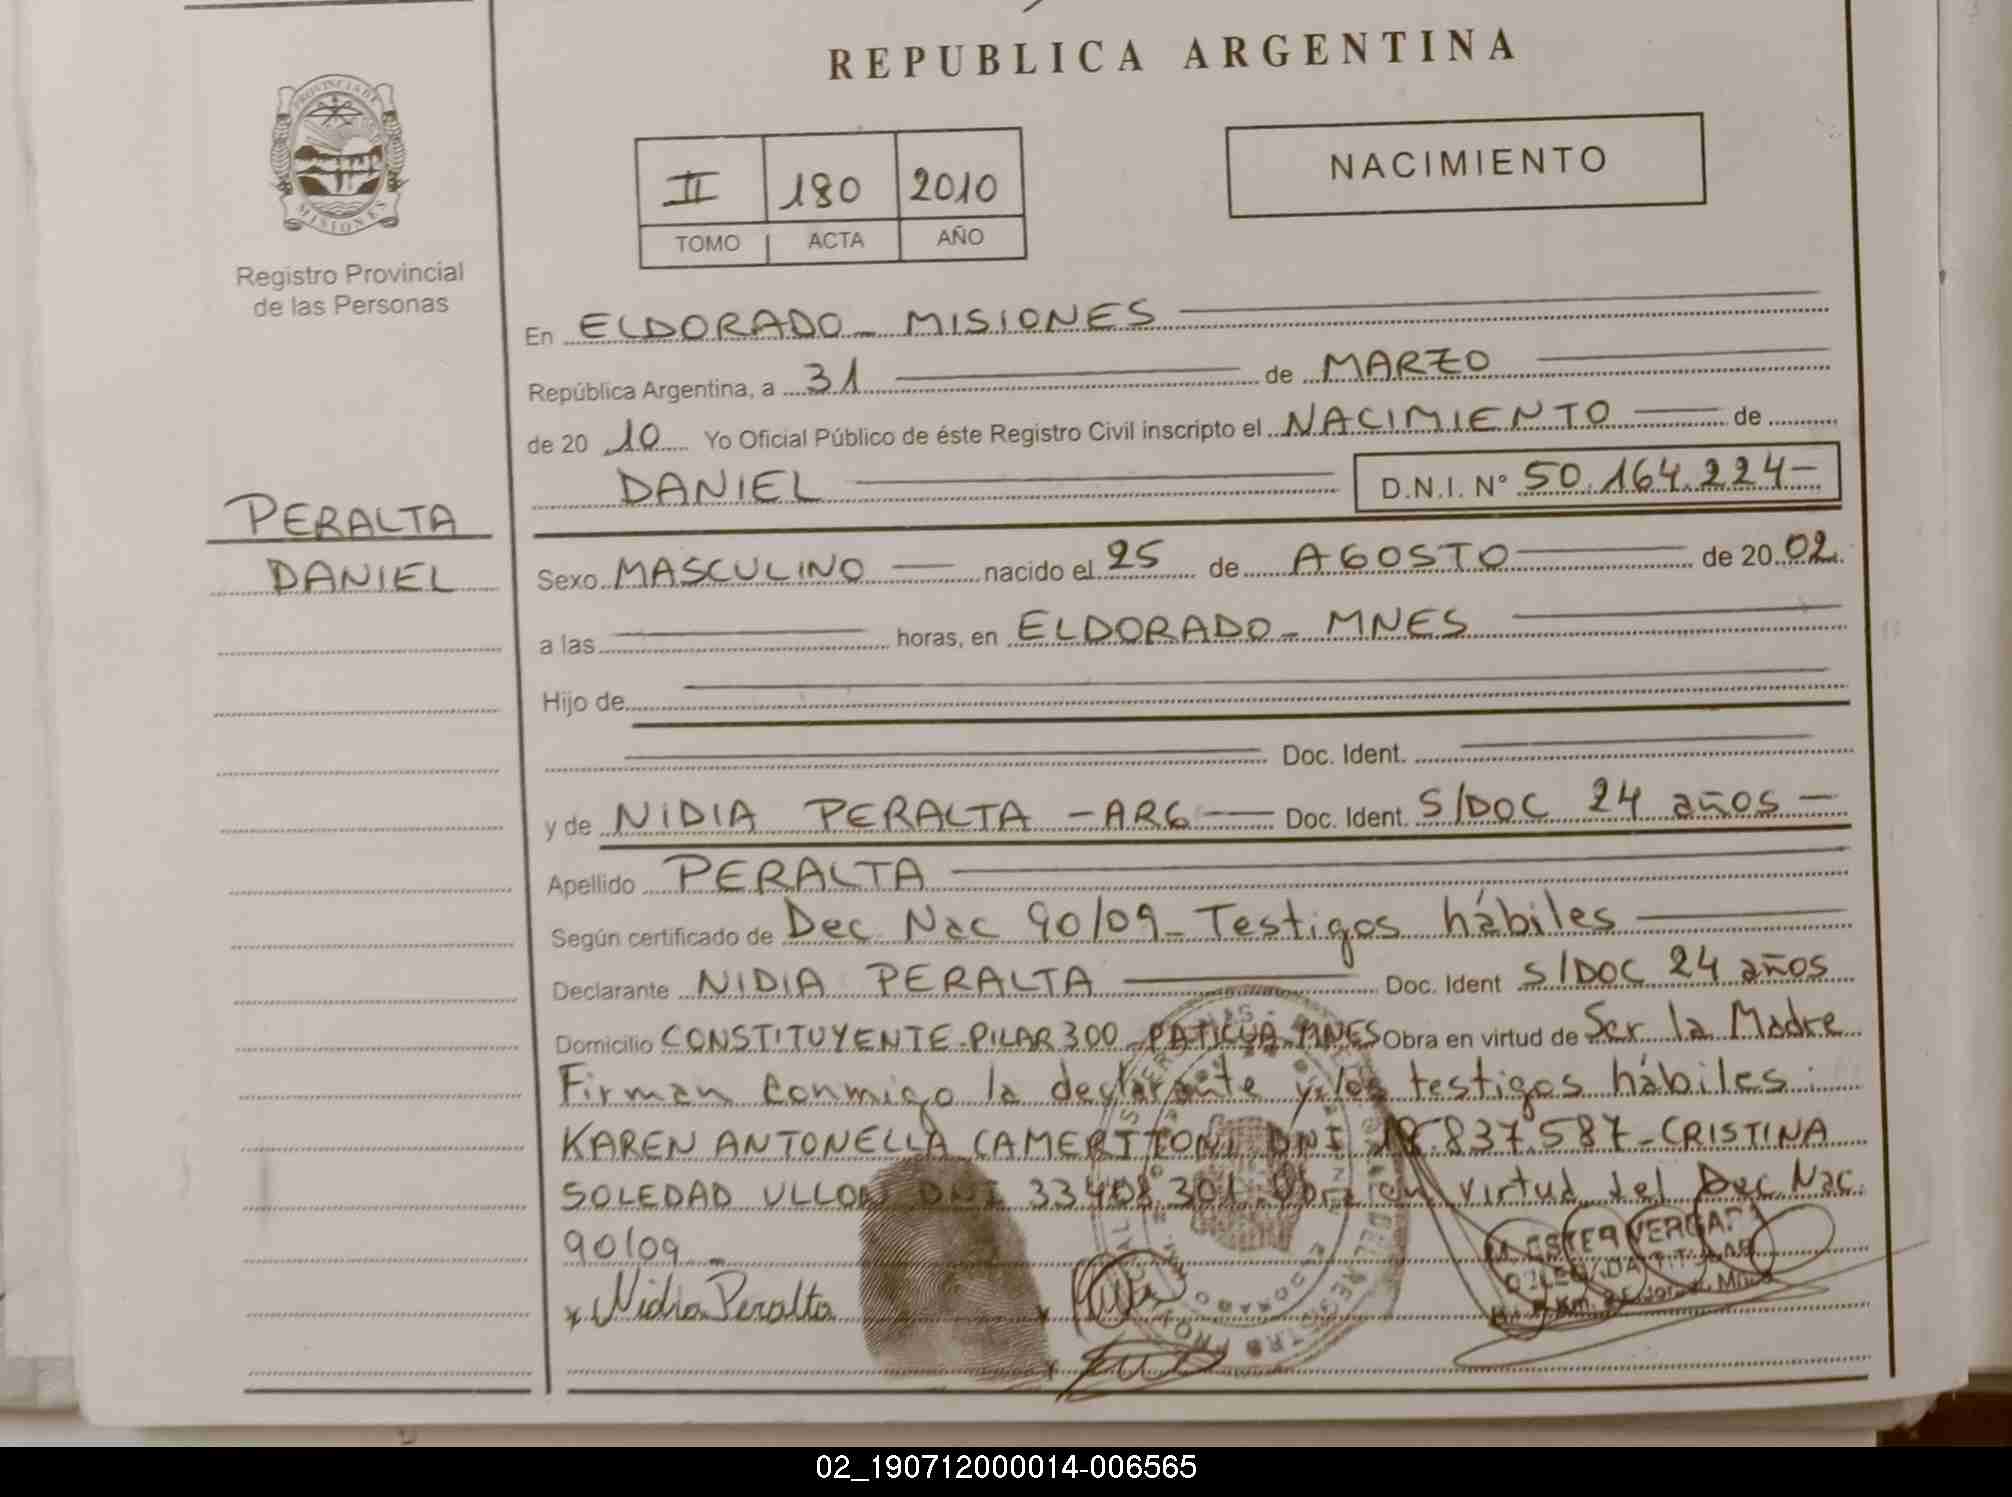 REPUBLICA ARGENTINA
PROVINCIA DE
MISIONES
Registro Provincial
de las Personas
II 180 2010
TOMO ACTA AÑO
NACIMIENTO
PERALTA
DANIEL
En ELDORADO - MISIONES
República Argentina, a 31 de MARZO
de 20 10 Yo Oficial Público de éste Registro Civil inscripto el NACIMIENTO de
DANIEL D.N.I. N° 50.164.224-
Sexo MASCULINO nacido el 25 de AGOSTO de 20 02
a las horas, en ELDORADO - MNES
Hijo de
Doc. Ident.
y de NIDIA PERALTA - ARG Doc. Ident. S/DOC 24 años
Apellido PERALTA
Según certificado de Dec Nac 90/09 - Testigos hábiles
Declarante NIDIA PERALTA Doc. Ident S/DOC 24 años
Domicilio CONSTITUYENTE PILAR 300 - PATICUA MNES Obra en virtud de Ser la Madre
Firman conmigo la declarante y los testigos hábiles:
KAREN ANTONELLA CAMERTTONI DNI .837.587 - CRISTINA
SOLEDAD ULLON DNI 33408.301. Obra en virtud del Dec Nac
90/09 -
x Nidia Peralta
M. ESTER VERGARA
02_190712000014-006565